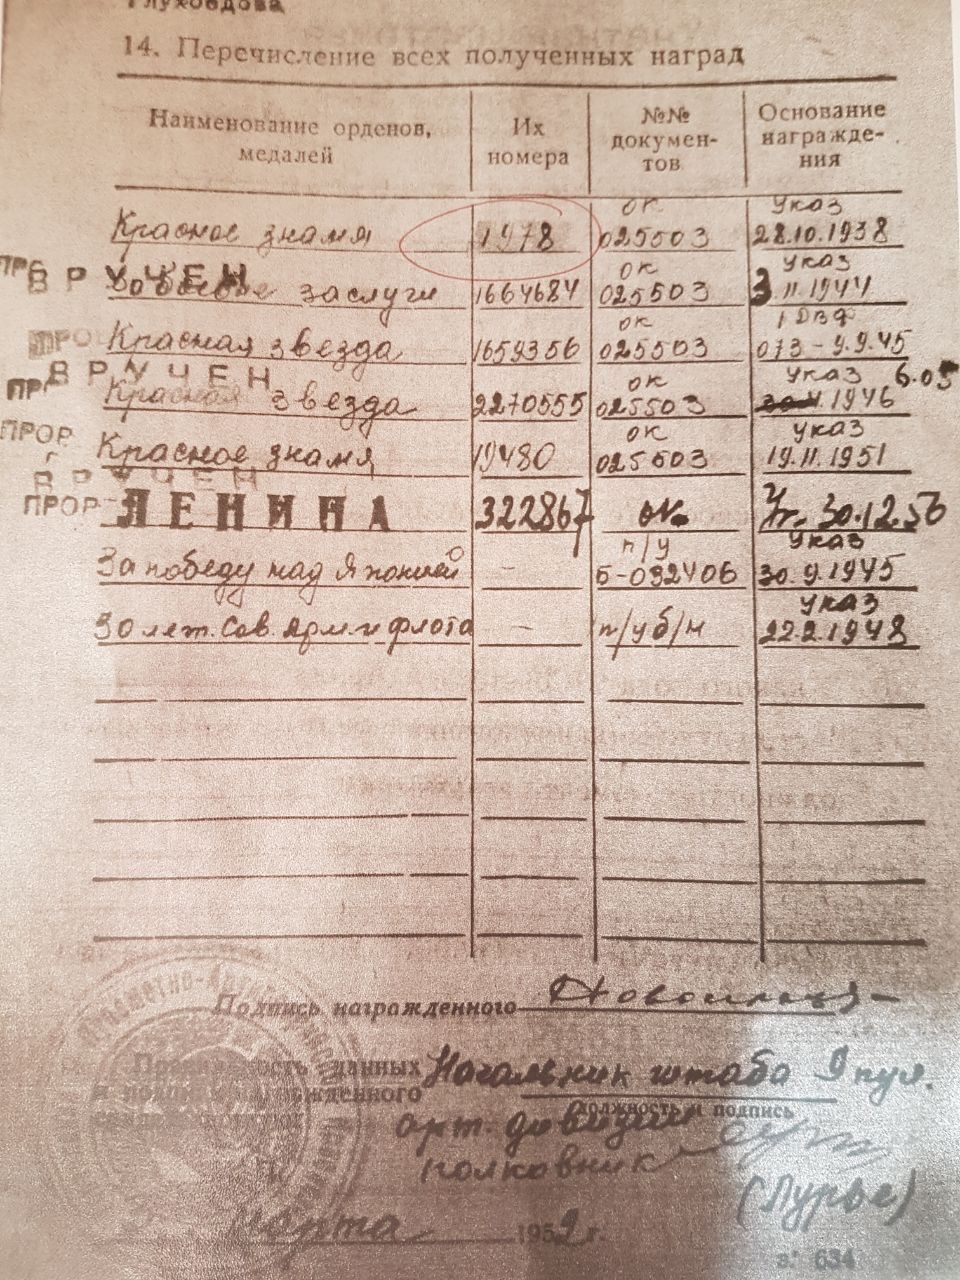 14. Перечисление всех полученных наград
Наименование орденов, медалей
Их номера
№№ докумен-тов
Основание награжде-ния
Красное знамя 1978 ок 025503 указ 28.10.1938
ВРУЧЕН
За боевые заслуги 1664684 ок 025503 указ 3.11.1944
Красная звезда 1659356 ок 025503 1 ДВФ 073-9.9.45
ВРУЧЕН
Красная звезда 2270555 ок 025503 указ 6.05 1946
ПРОР
Красное знамя 19480 ок 025503 указ 19.11.1951
ВРУЧЕН
ПРОР ЛЕНИНА 322867 ок. Ук. 30.12.56
За победу над Японией – п/у Б-032406 указ 30.9.1945
30 лет. Сов. Арм. и флота – п/у б/н указ 22.2.1948
Подпись награжденного
Правильность данных Начальник штаба 9 пул.
и подписи награжденного
должность и подпись
арт. дивизии
полковник
(Лурье)
марта 1952 г.
з. 634